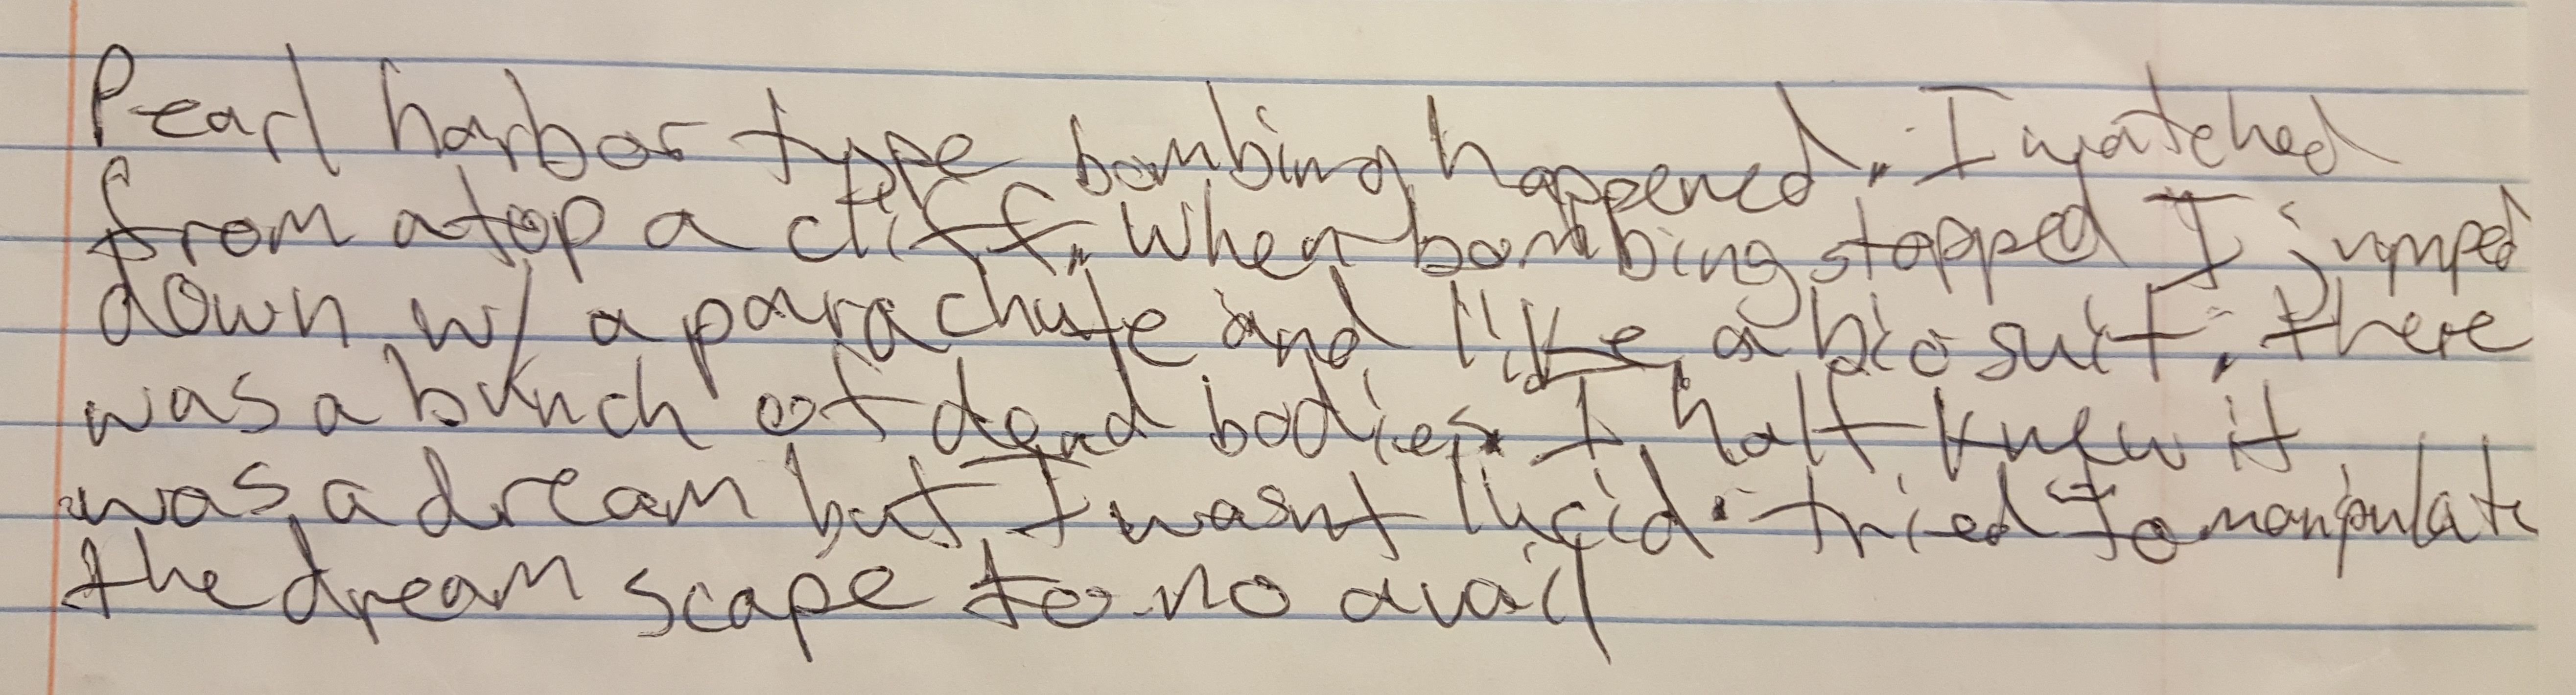 Pearl harbor type bombing happened. I watched
from atop a cliff. When bombing stopped I jumped
down w/ a parachute and like a bio suit. there
was a bunch of dead bodies. I half knew it
was a dream but I wasnt lucid. tried to manipulate
the dream scape to no avail